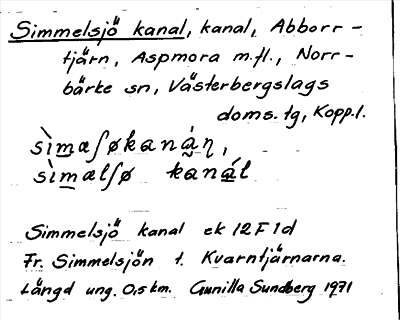 Simmelsjö kanal, kanal, Abborr-
tjärn, Aspmora m.fl., Norr-
bärke sn, Västerbergslags
doms. tg, Kopp. l.
sìmæʃøkanáη,
sìmælʃø kanál
Simmelsjö kanal ek 12 F 1d
Fr. Simmelsjön t. Kvarntjärnarna.
Längd ung. 0,5 km. Gunilla Sundberg 1971